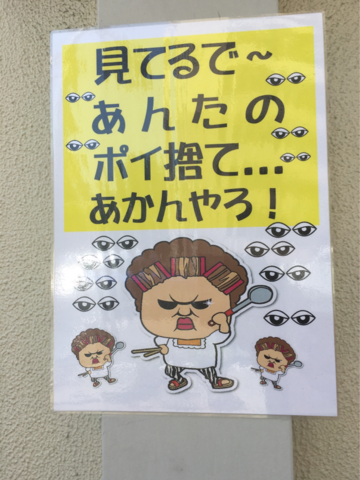 見てるで~
あんたの
ポイ捨て...
あかんやろ!